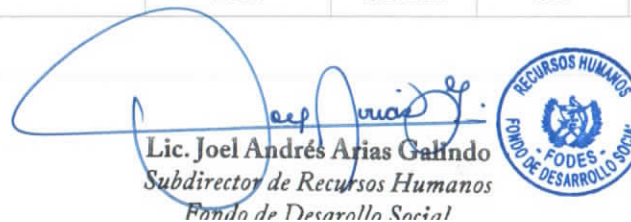 Joel Arias G.
Lic. Joel Andrés Arias Galindo
Subdirector de Recursos Humanos
Fondo de Desarollo Social
RECURSOS HUMANOS
FODES
FONDO DE DESARROLLO SOCIAL